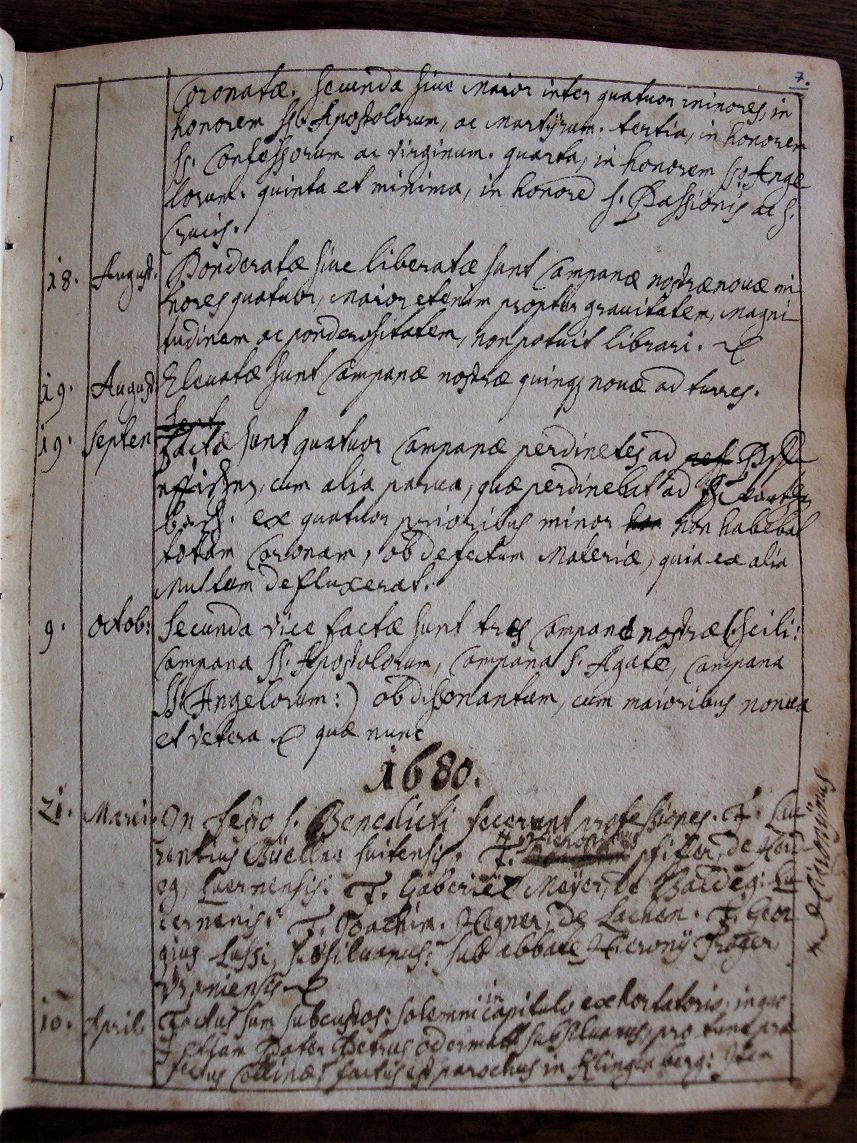 7.
Coronatæ. secunda siue maior inter quatuor minores, in
honorem SS. Apostolorum, ac Martÿrum. tertia, in honorem
SS. Confessorum ac Virginum. quarta, in honorem SS. Ange
lorum. quinta et minima, in honorē S. Passionis ac S.
Crucis.
18. August. Ponderatæ siue liberatæ sunt Campanæ nostræ nouæ mi
nores quatuor, maior etenim propter grauitatem, magni
tudinem ac ponderositatem, non potuit librari.
19. August. Eleuatæ sunt Campanæ nostræ quinq; nouæ ad turres.
19. Septem factæ sunt quatuor Campanæ ad
cum alia parua, quæ ad
ex quatuor prioribus minor non habebat
totam Coronam, ob defectum materiæ, quia ex alia
multum defluxerat.
9. Octob: Secunda vice factæ sunt tres Campanæ nostræ (: scili:
Campana SS. Apostolorum, Campana S. Agatæ, Campana
SS. Angelorum :) ob dissonantiam, cum maioribus noua
et vetera quæ nunc
1680.
21. Marti In festo S. Benedicti fecerunt professiones. F. Lau
rentius Büeller suitensis. F. Hieronÿmus pfiffer, de
eg, Lucernensis: F. Gabriel Meÿer, de Baldeg: Lu
cernensis. F. Joachim. Hegner, de Lachen. F. Geor
gius Lussi, subsiluanus: sub abbate Hieronÿ Troger
Vraniensis
P Hieronÿmus
10. April. Factus sum subcustos: solemni in capitulo exhortatorio, in quo
etiam Pater Petrus odermatt subsiluanus, pro tunc præ
fectus Collinæ, factus est parochus in Klingenberg: Item